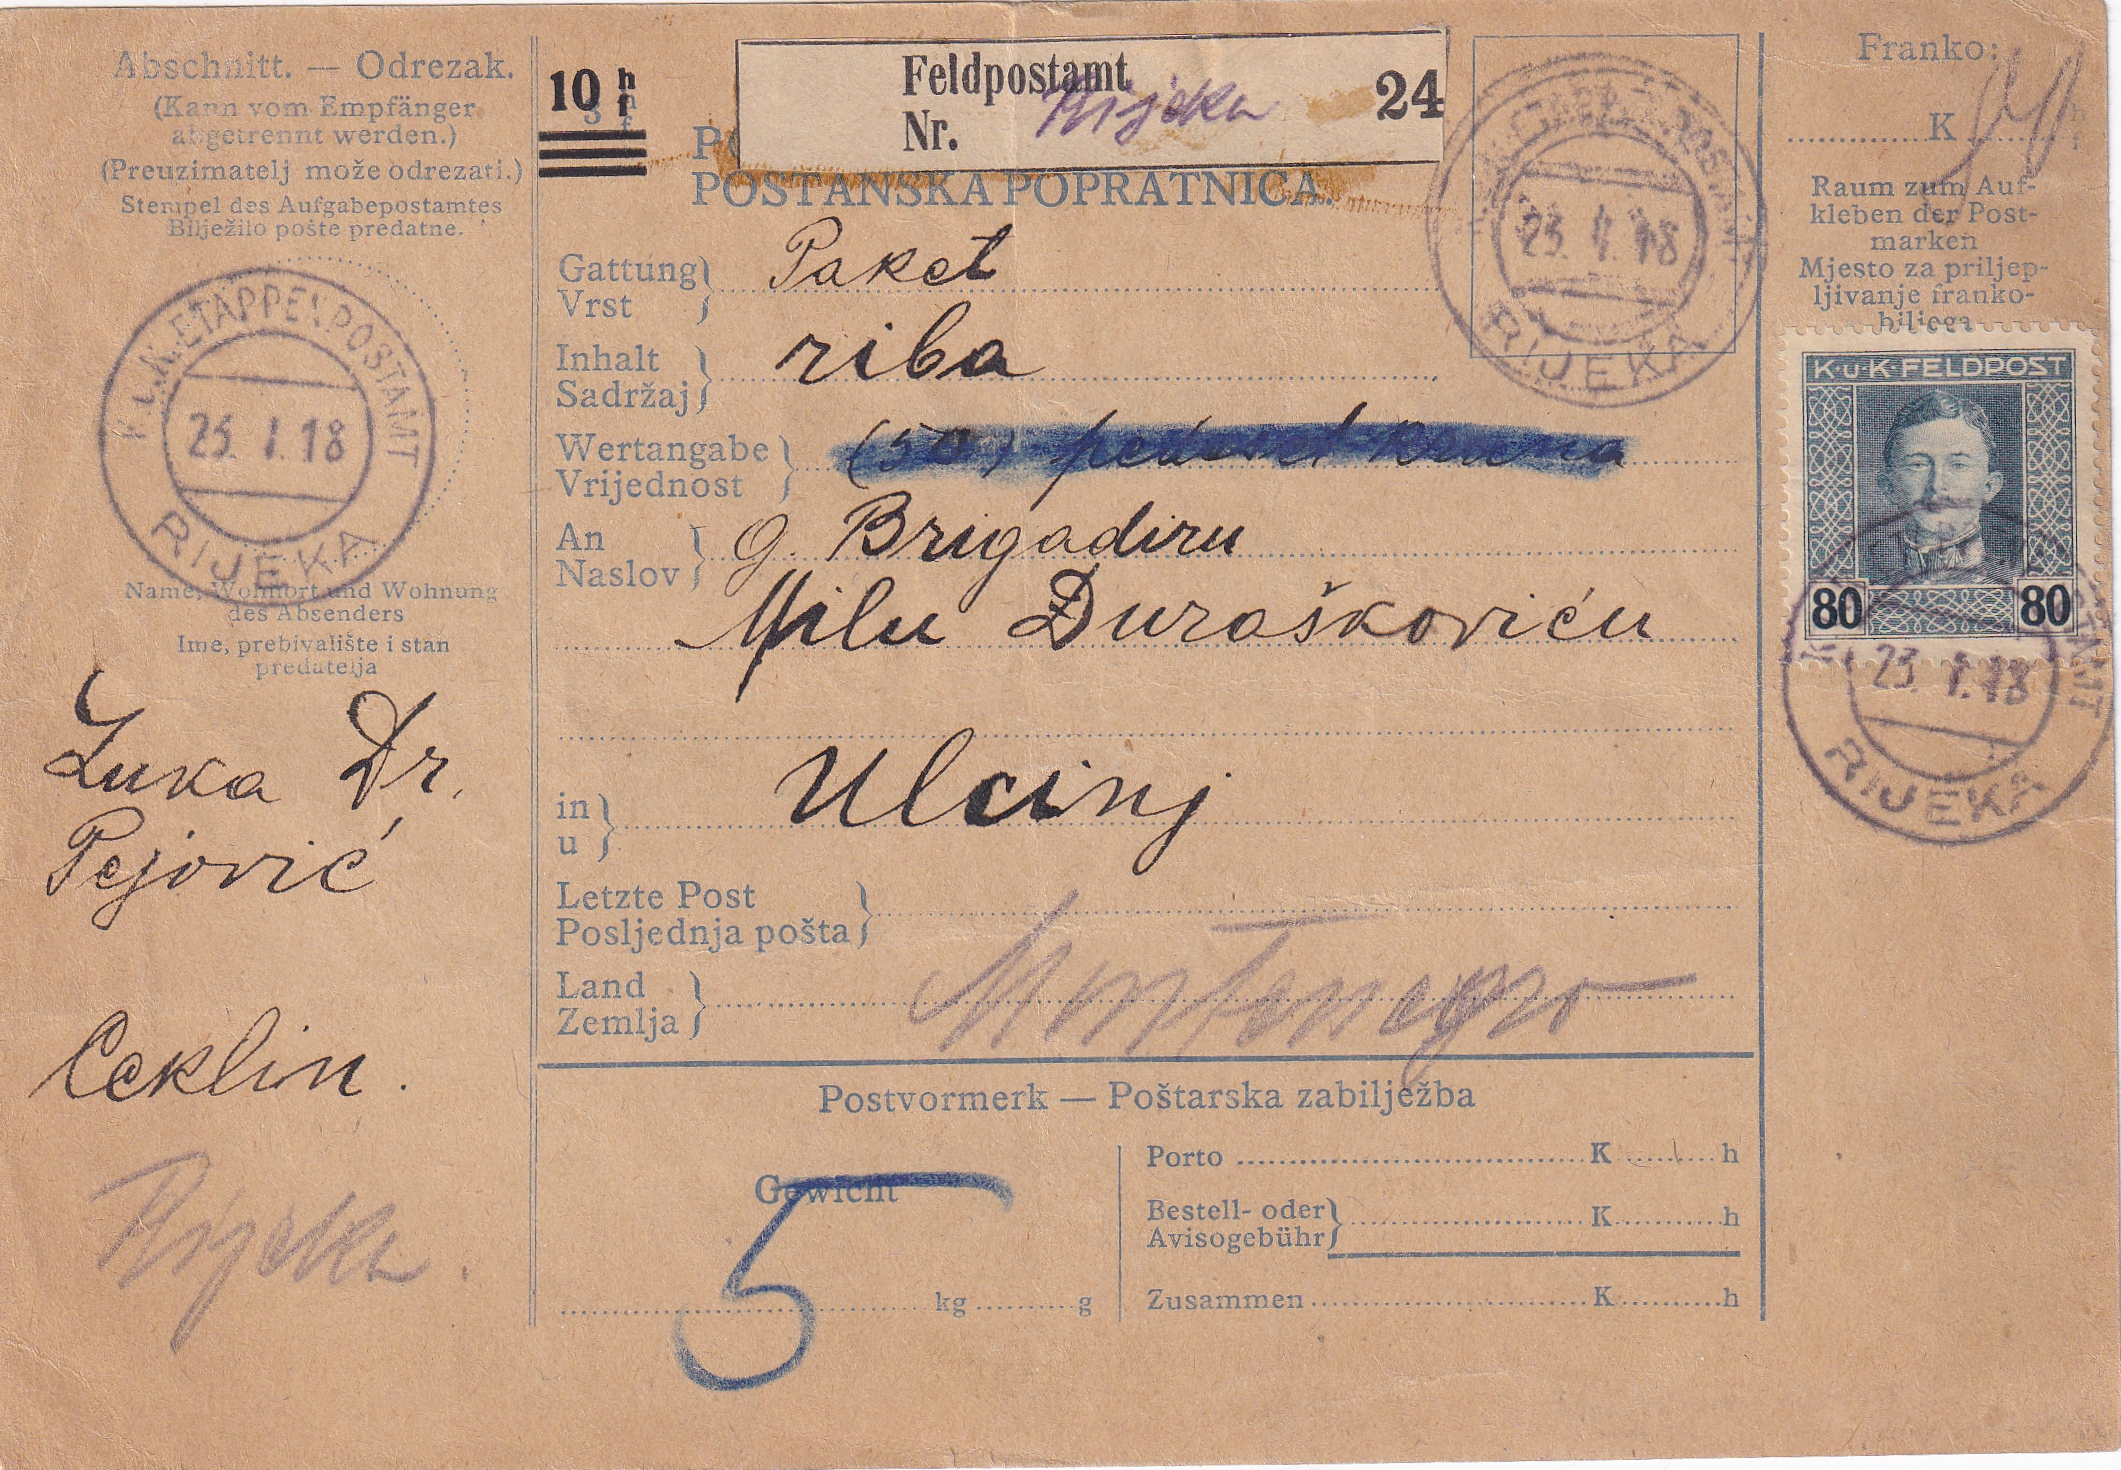 Abschnitt. — Odrezak.
(Kann vom Empfänger
abgetrennt werden.)
(Preuzimatelj može odrezati.)
Stempel des Aufgabepostamtes
Bilježilo pošte predatne.
K.U.K. ETAPPENPOSTAMT
23. I. 18
RIJEKA
Name, Wohnort und Wohnung
des Absenders
Ime, prebivalište i stan
predatelja
Luka Dr.
Pejović
Ceklin.
Rijeka.
10 h
f
Feldpostamt
Nr. Rijeka
24
POŠTANSKA POPRATNICA.
Gattung
Vrst
Paket
Inhalt
Sadržaj
riba
Wertangabe
Vrijednost
(50) pedeset kruna
An
Naslov
g. Brigadiru
Milu Đuraškoviću
in
u
Ulcinj
Letzte Post
Posljednja pošta
Land
Zemlja
Montenegro
Postvormerk — Poštarska zabilježba
Gewicht
5
kg g
Porto K h
Bestell- oder
Avisogebühr K h
Zusammen K h
K.U.K. ETAPPENPOSTAMT
23. I. 18
RIJEKA
Franko:
K
Raum zum Auf-
kleben der Post-
marken
Mjesto za priljep-
ljivanje franko-
biljega
K·u·K·FELDPOST
80 80
23. I. 18
RIJEKA